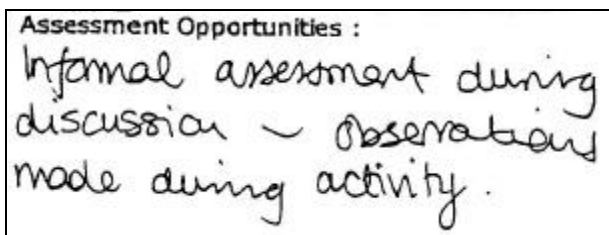 Assessment Opportunities :
Informal assessment during
discussion ~ observations
made during activity.